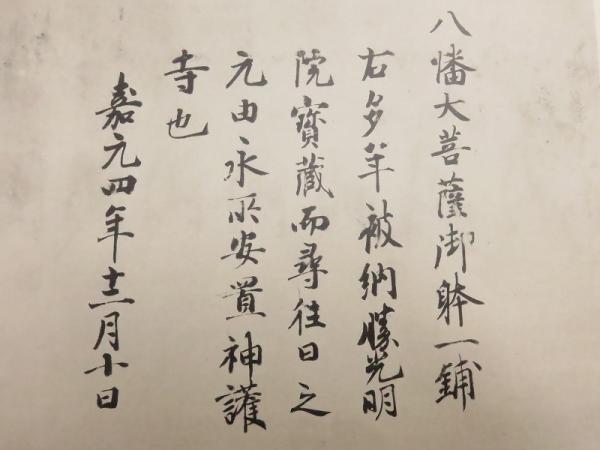 八幡大菩薩御躰一鋪
右多年被納勝光明
院寶蔵而尋往日之
元由永所安置神護
寺也
嘉元四年十二月十日